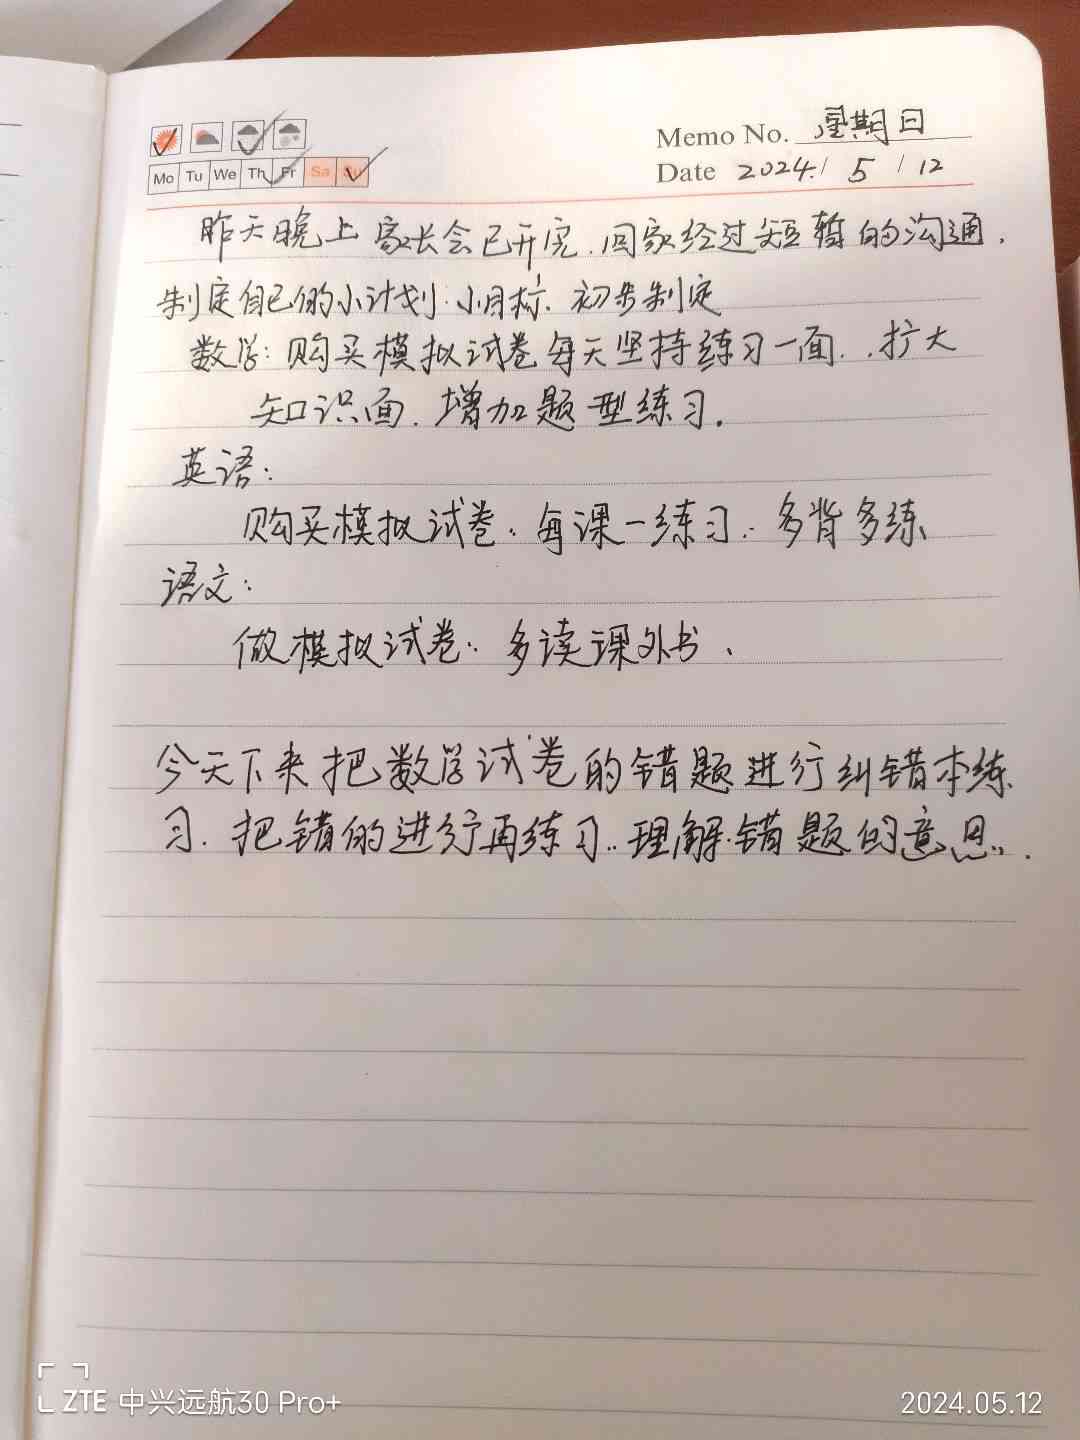 Memo No. 星期日
Mo Tu We Th Fr Sa Su
Date 2024 / 5 / 12
昨天晚上家长会已开完.回家经过短暂的沟通.
制定自己的小计划.小目标.初步制定
数学:购买模拟试卷.每天坚持练习一面..扩大
知识面.增加题型练习.
英语:
购买模拟试卷.每课一练习.多背多练
语文:
做模拟试卷.多读课外书.
今天下来把数学试卷的错题进行纠错本练
习.把错的进行再练习..理解.错题的意思..
ZTE 中兴远航30 Pro+
2024.05.12